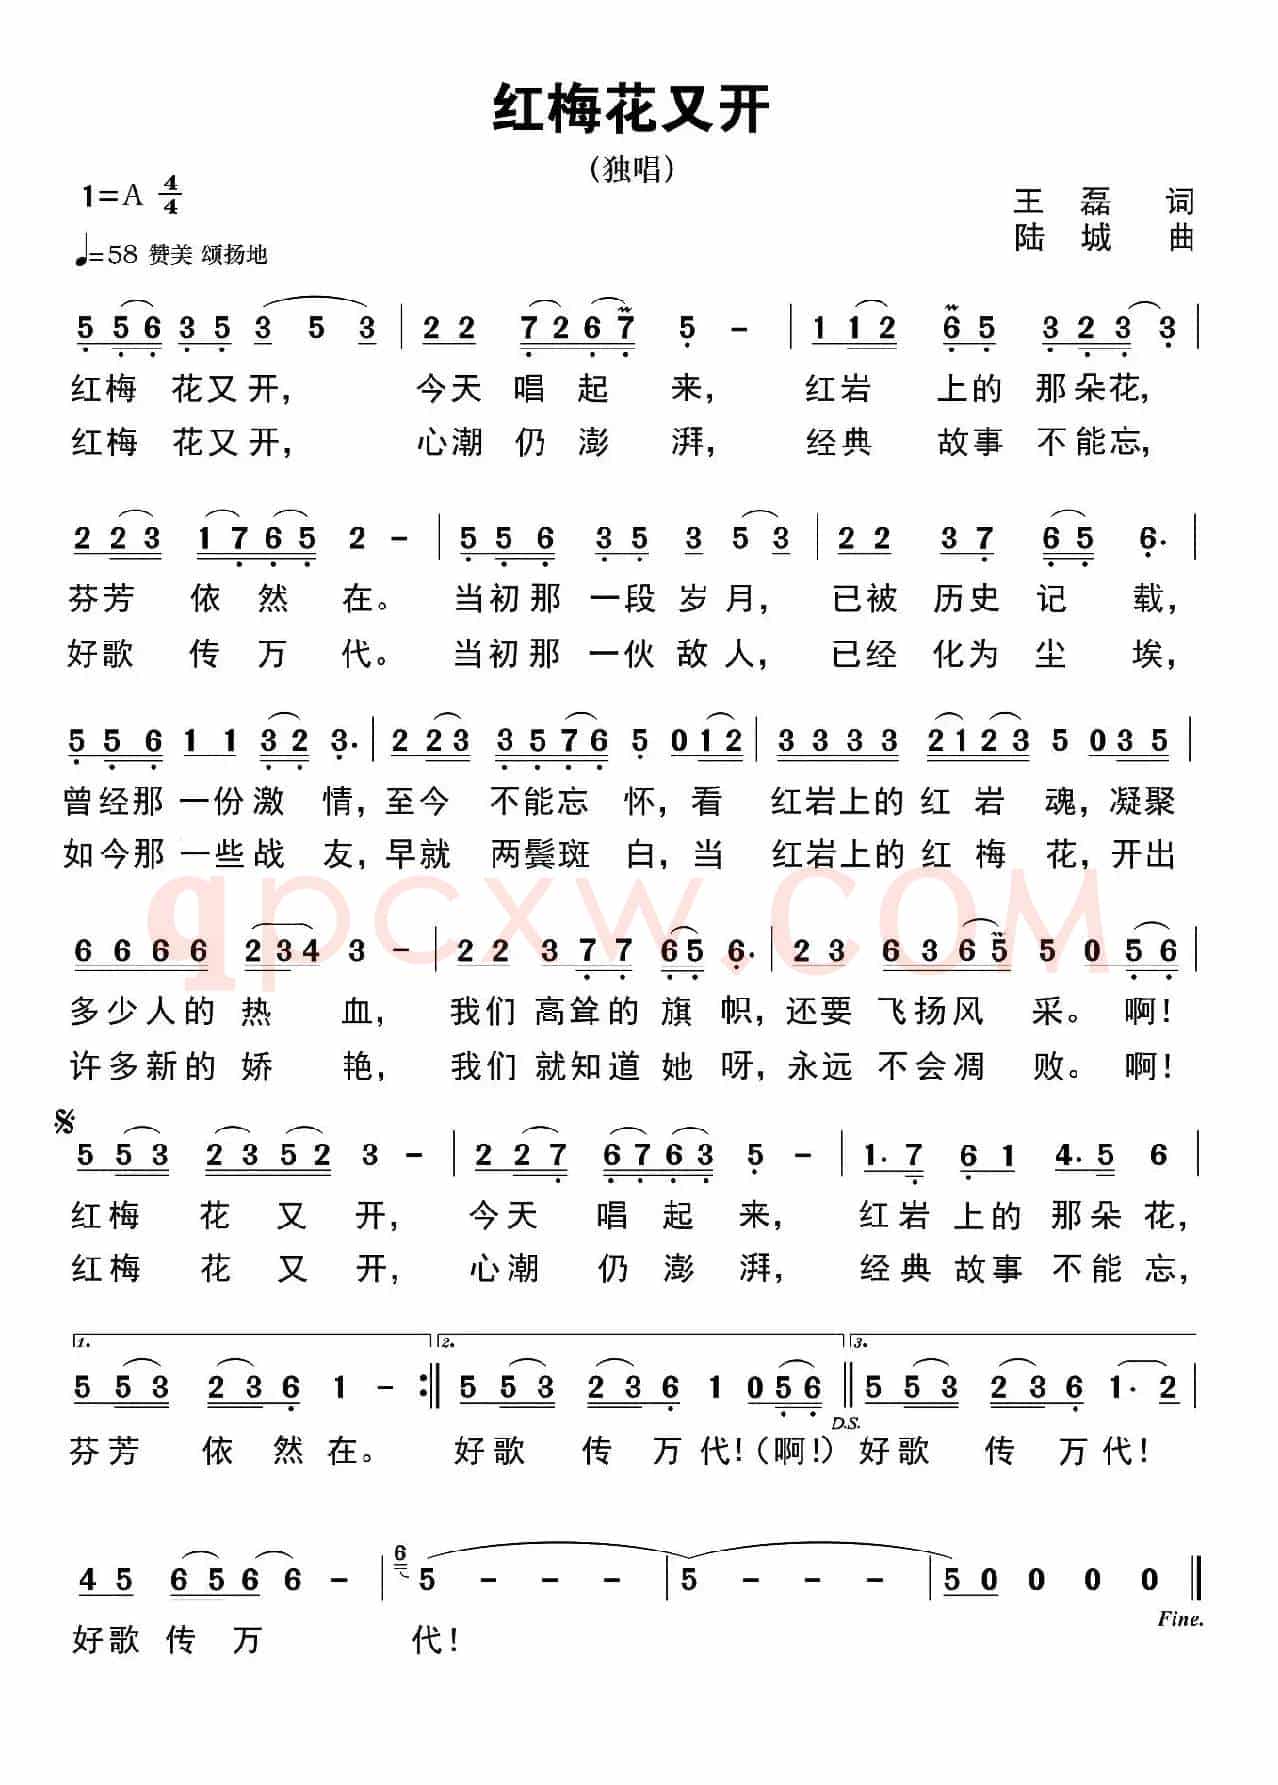 红梅花又开
（独唱）
1=A 4/4
王 磊 词
♩=58 赞美 颂扬地
陆 城 曲
5 5 6 3 5 3 5 3 | 2 2 7 2 6 7 5 - | 1 1 2 6 5 3 2 3 3 |
红梅 花又开， 今天 唱 起 来， 红岩 上的 那朵花，
红梅 花又开， 心潮 仍 澎 湃， 经典 故事 不能忘，
2 2 3 1 7 6 5 2 - | 5 5 6 3 5 3 5 3 | 2 2 3 7 6 5 6. |
芬芳 依 然 在。 当初那 一段 岁月， 已被 历史 记 载，
好歌 传 万 代。 当初那 一伙 敌人， 已经 化为 尘 埃，
5 5 6 1 1 3 2 3. | 2 2 3 3 5 7 6 5 0 1 2 | 3 3 3 3 2 1 2 3 5 0 3 5 |
曾经那 一份激 情，至今 不能忘 怀，看 红岩上的 红 岩 魂，凝聚
如今那 一些战 友，早就 两鬓斑 白，当 红岩上的 红 梅 花，开出
qpcxw.COM
6 6 6 6 2 3 4 3 - | 2 2 3 7 7 6 5 6. | 2 3 6 3 6 5 5 0 5 6 |
多少人的 热 血， 我们 高耸的 旗 帜，还要 飞扬风 采。 啊！
许多新的 娇 艳， 我们 就知道 她 呀，永远 不会凋 败。 啊！
5 5 3 2 3 5 2 3 - | 2 2 7 6 7 6 3 5 - | 1. 7 6 1 4. 5 6 |
红梅 花 又 开， 今天 唱 起 来， 红岩 上的 那朵 花，
红梅 花 又 开， 心潮 仍 澎 湃， 经典 故事 不能 忘，
1. 2. 3.
5 5 3 2 3 6 1 - :|| 5 5 3 2 3 6 1 0 5 6 || 5 5 3 2 3 6 1. 2 |
D.S.
芬芳 依 然 在。 好歌 传 万 代！（啊！）好歌 传 万 代！
4 5 6 5 6 6 - | 6 5 - - - | 5 - - - | 5 0 0 0 0 ||
Fine.
好歌 传 万 代！